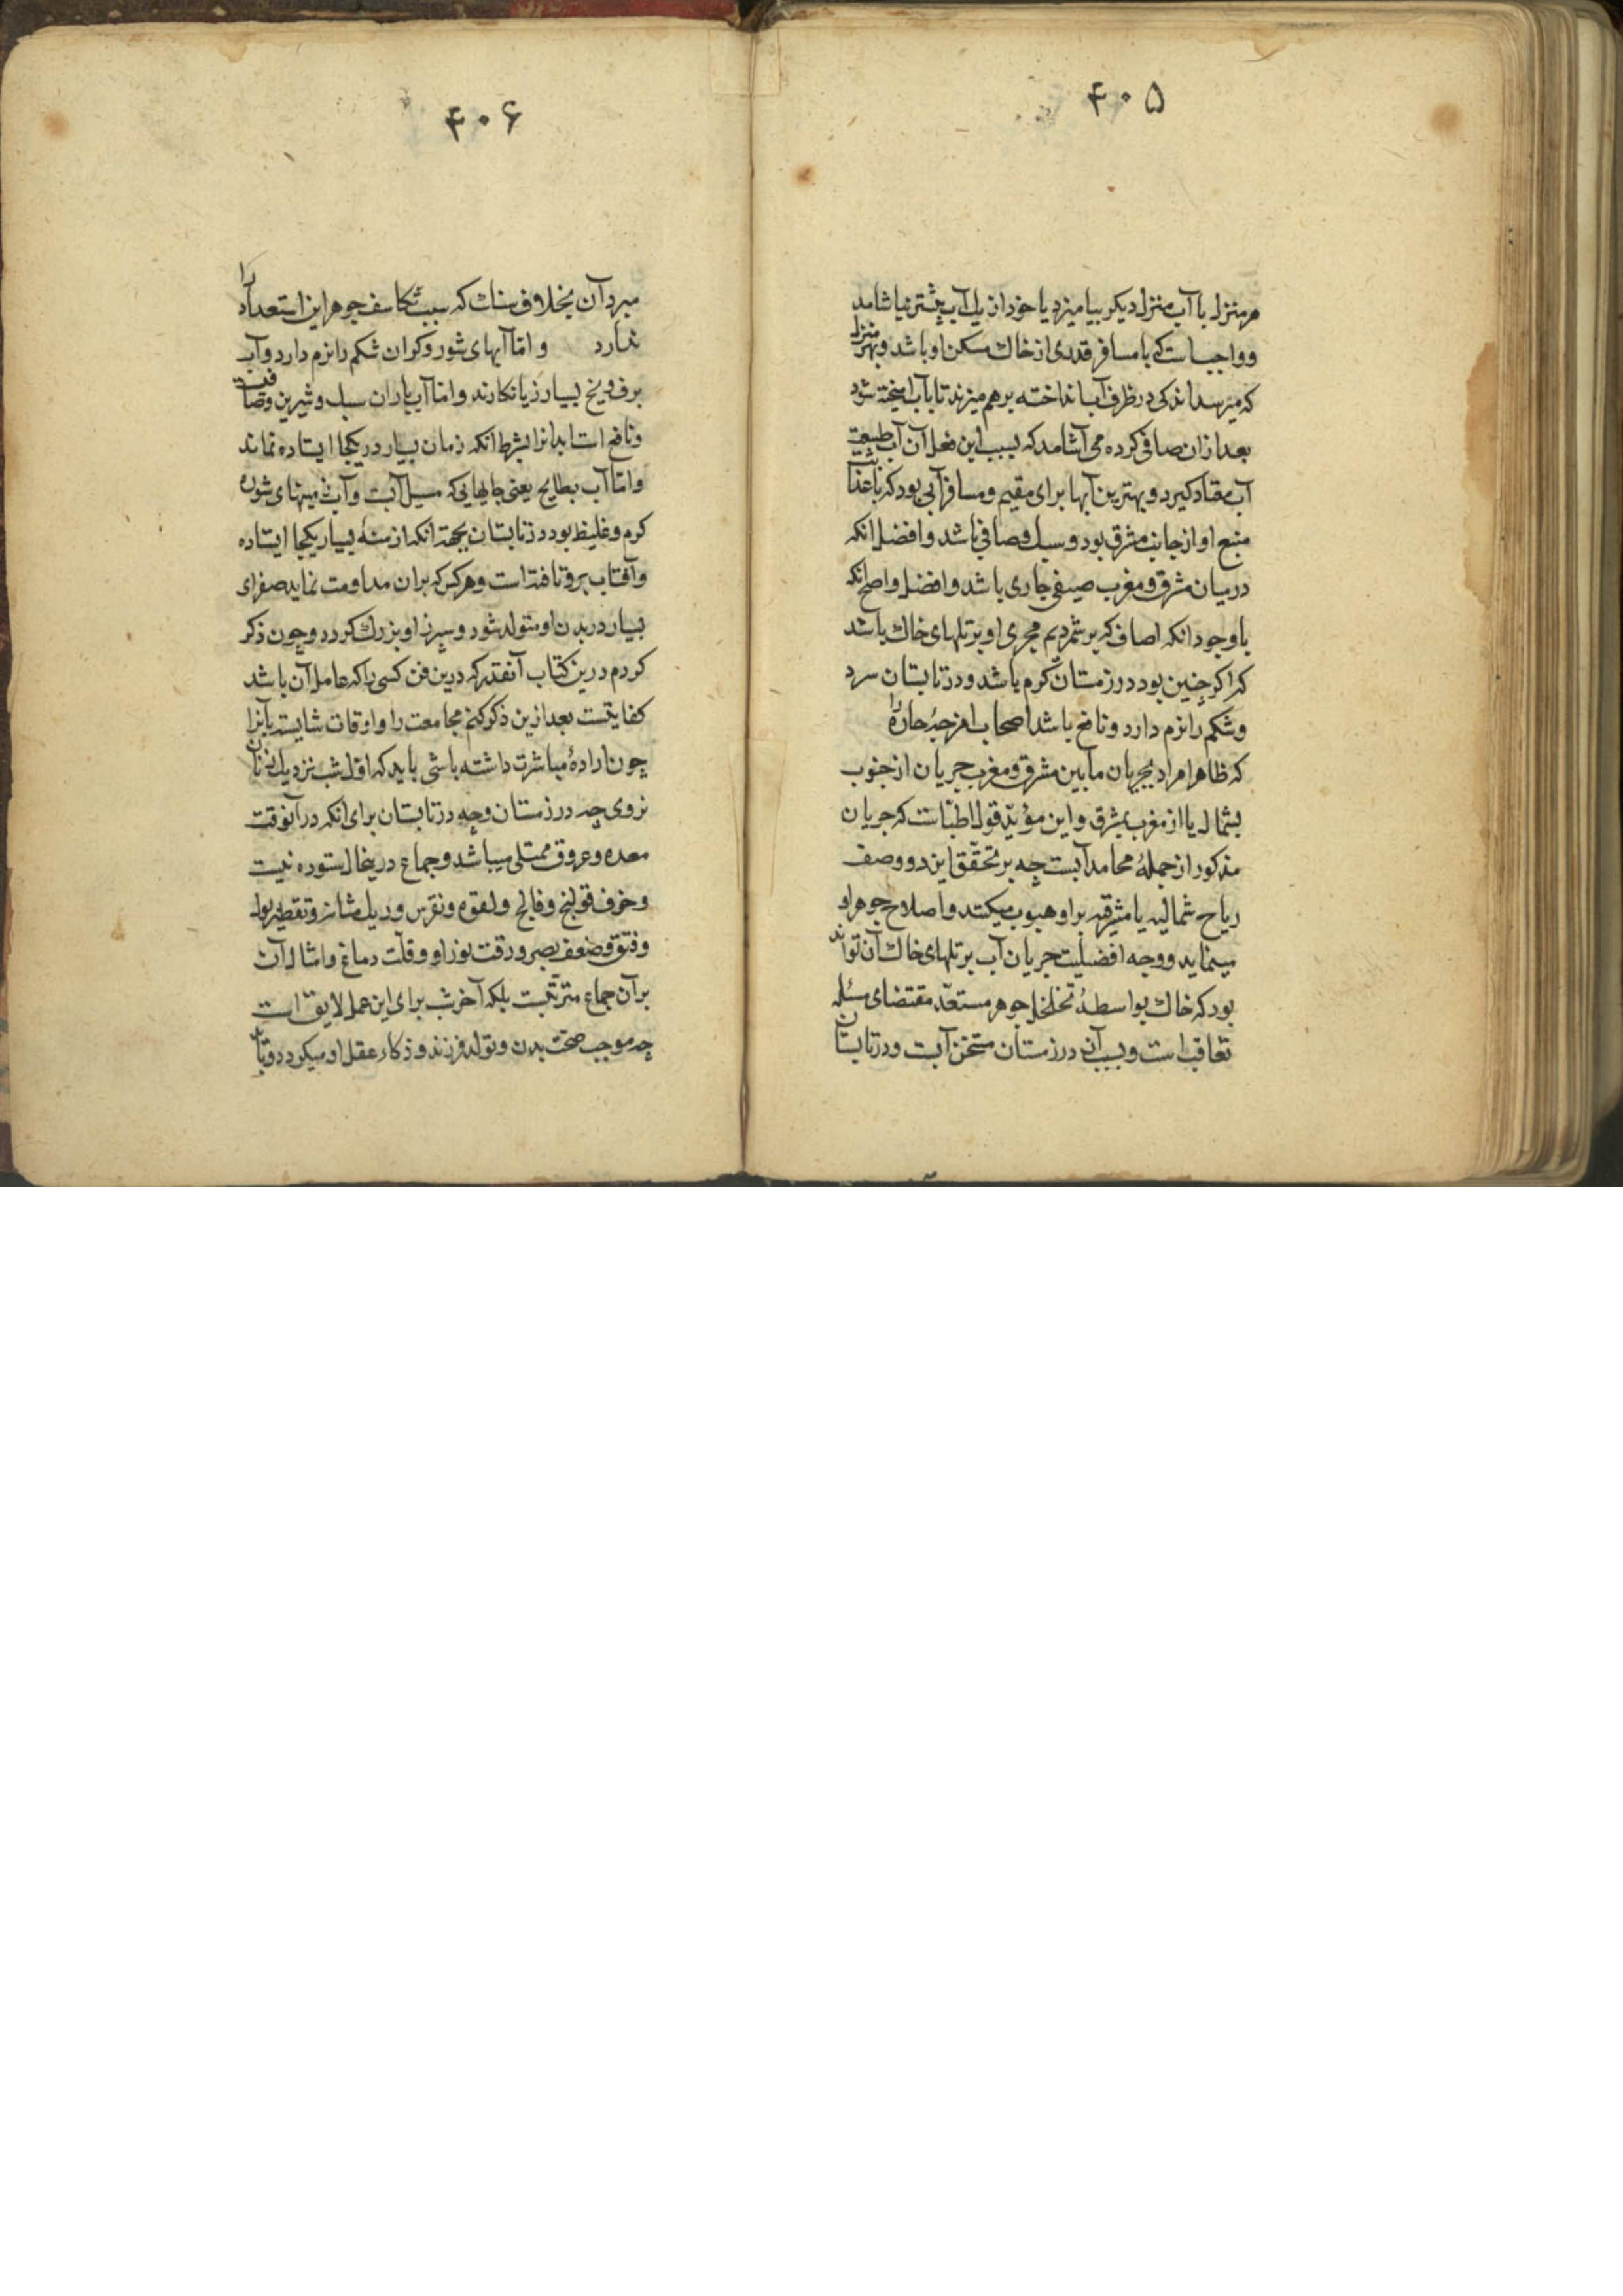 ۴۰۵
هر منزل با آب منزل دیکر بیامیزد یا خود از یك آب پیشتر نیاشامد
و واجبست که با مسافر قدری از خاك مسکن او باشد و بهر منزل
که میرسد اندکی در ظرف آب انداخته برهم میزند تا باب امیخته شود
بعد ازان صافی کرده می آشامد که بسبب این فعل آن آب طبیعت
آب معتاد کیرد و بهترین آبها برای مقیم و مسافر آبی بود که
منبع او از جانب مشرق بود و سبك و صافی باشد و افضل انکه
در میان مشرق و مغرب صیفی جاری باشد و افضل و اصلح انکه
با وجود انکه اصاف که برشمردیم مجری او بر تلهای خاك باشد
که اکر چنین بود در زمستان کرم باشد و در تابستان سرد
و شکم را نرم دارد و نافع باشد اصحاب امزجهٔ حاره را
که ظاهرا مراد بجریان مابین مشرق و مغرب جریان از جنوب
بشمال یا از مغرب بمشرق و این مؤید قول اطباست که جریان
مذکور از جملهٔ محامد آبست چه بر تحقق این دو وصف
ریاح شمالیه یا مشرقیه بر او هبوب میکنند و اصلاح جوهر او
مینماید و وجه افضلیت جریان آب بر تلهای خاك آن تواند
بود که خاك بواسطهٔ تخلخل جوهر مستعد مقتضای مسئله
تعاقب است و بسبب آن در زمستان مسخن آبست و در تابستان
۴۰۶
مبرد آن بخلاف سنك که بسبب تکاسف جوهر این استعداد را
ندارد و اما آبهای شور و کران شکم را نرم دارد و آب
برف و یخ بسیار زیانکارند و اما آب باران سبك و شیرین و صافیست
و نافع است ابدانرا بشرط انکه زمان بسیار در یکجا ایستاده نماند
و اما آب بطایح یعنی جایهایی که مسیل آبست و آب زمینهای شوره
کرم و غلیظ بود در تابستان بجهة انکه ازمنهٔ بسیار یکجا ایستاده
و آفتاب برو تافته است و هر کس که بران مداومت نماید صفرای
بسیار در بدن او متولد شود و سپرز او بزرك کردد و چون ذکر
کردم درین کتاب آنقدر که درین فن کسی را که عامل آن باشد
کفایتست بعد ازین ذکر کنم مجامعت را و اوقات شایسته بآنرا
چون ارادهٔ مباشرت داشته باشی باید که اول شب نزدیك زنان
نروی چه در زمستان و چه در تابستان برای انکه در آنوقت
معده و عروق ممتلی میباشد و جماع درینحال ستوده نیست
و خوف قولنج و فالج و لقوه و نقرس و ریك مثانه و تقطیر بول
و فتق و ضعف بصر و رقت نور او و قلت دماغ و امثال آن
بر آن جماع مترتبست بلکه آخر شب برای این عمل لایق است
چه موجب صحت بدن و تولد فرزند و ذکاء عقل او میکردد و